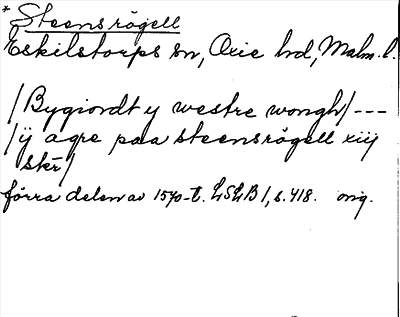 * Steensrögell
Eskilstorps sn, Oxie hd, Malm. l.
/Bygiordt y westre wongh/ ---
/ÿ agre paa steensrögell xiij
skr̄/
förra delen av 1570-t. LSLB 1, s. 418. orig.